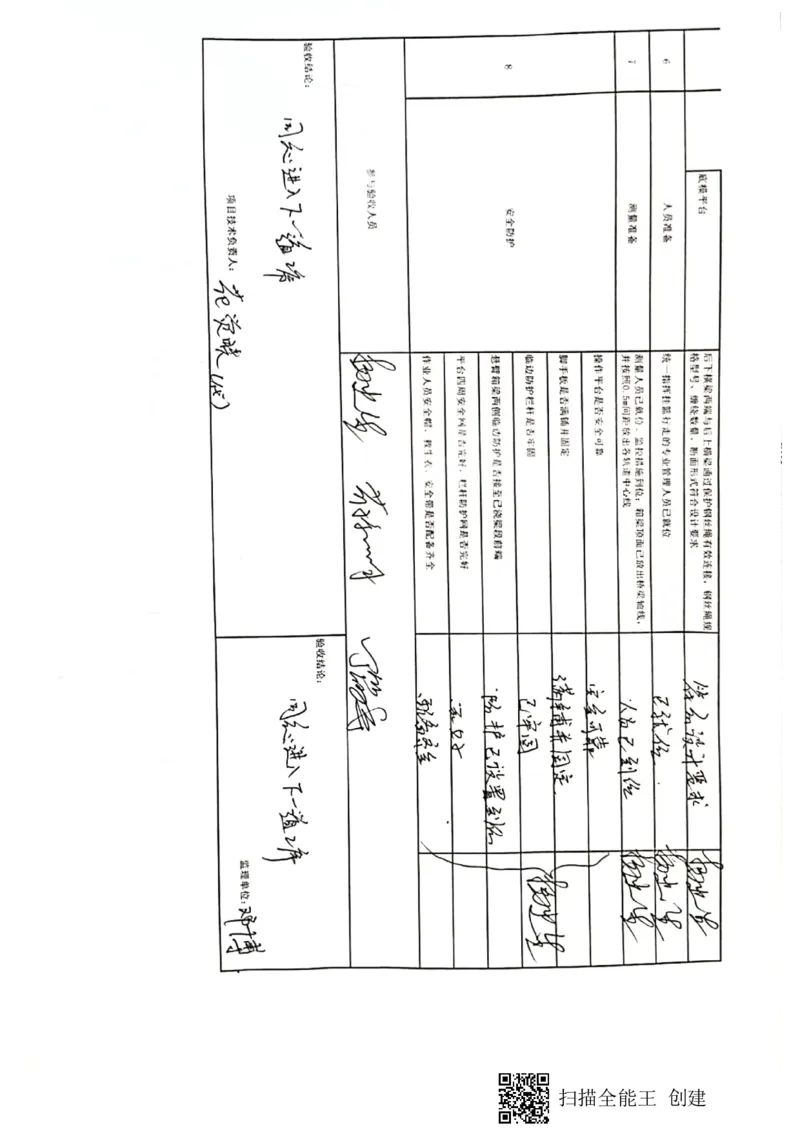 底模平台
后下横梁两端与后上横梁通过保护钢丝绳有效连接，钢丝绳规
格型号、缠绕数量、断面形式符合设计要求
符合设计要求
6
人员准备
统一指挥挂篮行走的专业管理人员已就位
已就位
7
测量准备
测量人员已就位、监控措施到位；箱梁顶面已放出桥梁轴线，
并按照0.5m间距放出各轨道中心线
人员已到位
8
安全防护
操作平台是否安全可靠
安全可靠
脚手板是否满铺并固定
满铺并固定
临边防护栏杆是否牢固
已牢固
悬臂箱梁两侧临边防护是否接至已浇梁段前端
防护已设置到位
平台四周安全网是否完好、栏杆防护网是否完好
完好
作业人员安全帽、救生衣、安全带是否配备齐全
配备齐全
参与验收人员
验收结论：
同意进入下一道工序
项目技术负责人：
验收结论：
同意进入下一道工序
监理单位：邓博
扫描全能王 创建